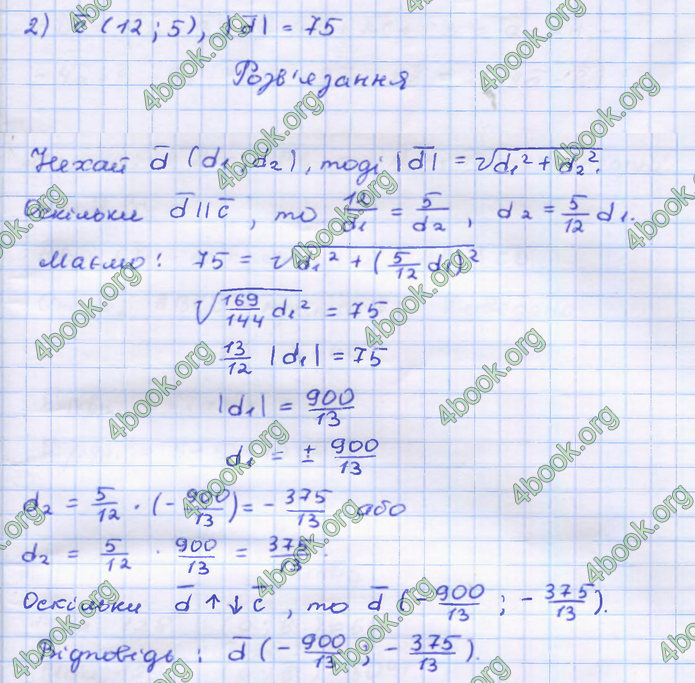 2) c̄ (12; 5), |d̄| = 75
Розв'язання
Нехай d̄ (d₁, d₂), тоді |d̄| = √(d₁² + d₂²).
Оскільки d̄ || c̄, то 12/d₁ = 5/d₂, d₂ = 5/12 d₁.
Маємо: 75 = √(d₁² + (5/12 d₁)²)
√(169/144 d₁²) = 75
13/12 |d₁| = 75
|d₁| = 900/13
d₁ = ± 900/13
d₂ = 5/12 · (- 900/13) = - 375/13 або
d₂ = 5/12 · 900/13 = 375/13.
Оскільки d̄ ↑↓ c̄, то d̄ (- 900/13; - 375/13).
Відповідь: d̄ (- 900/13; - 375/13).
4book.org